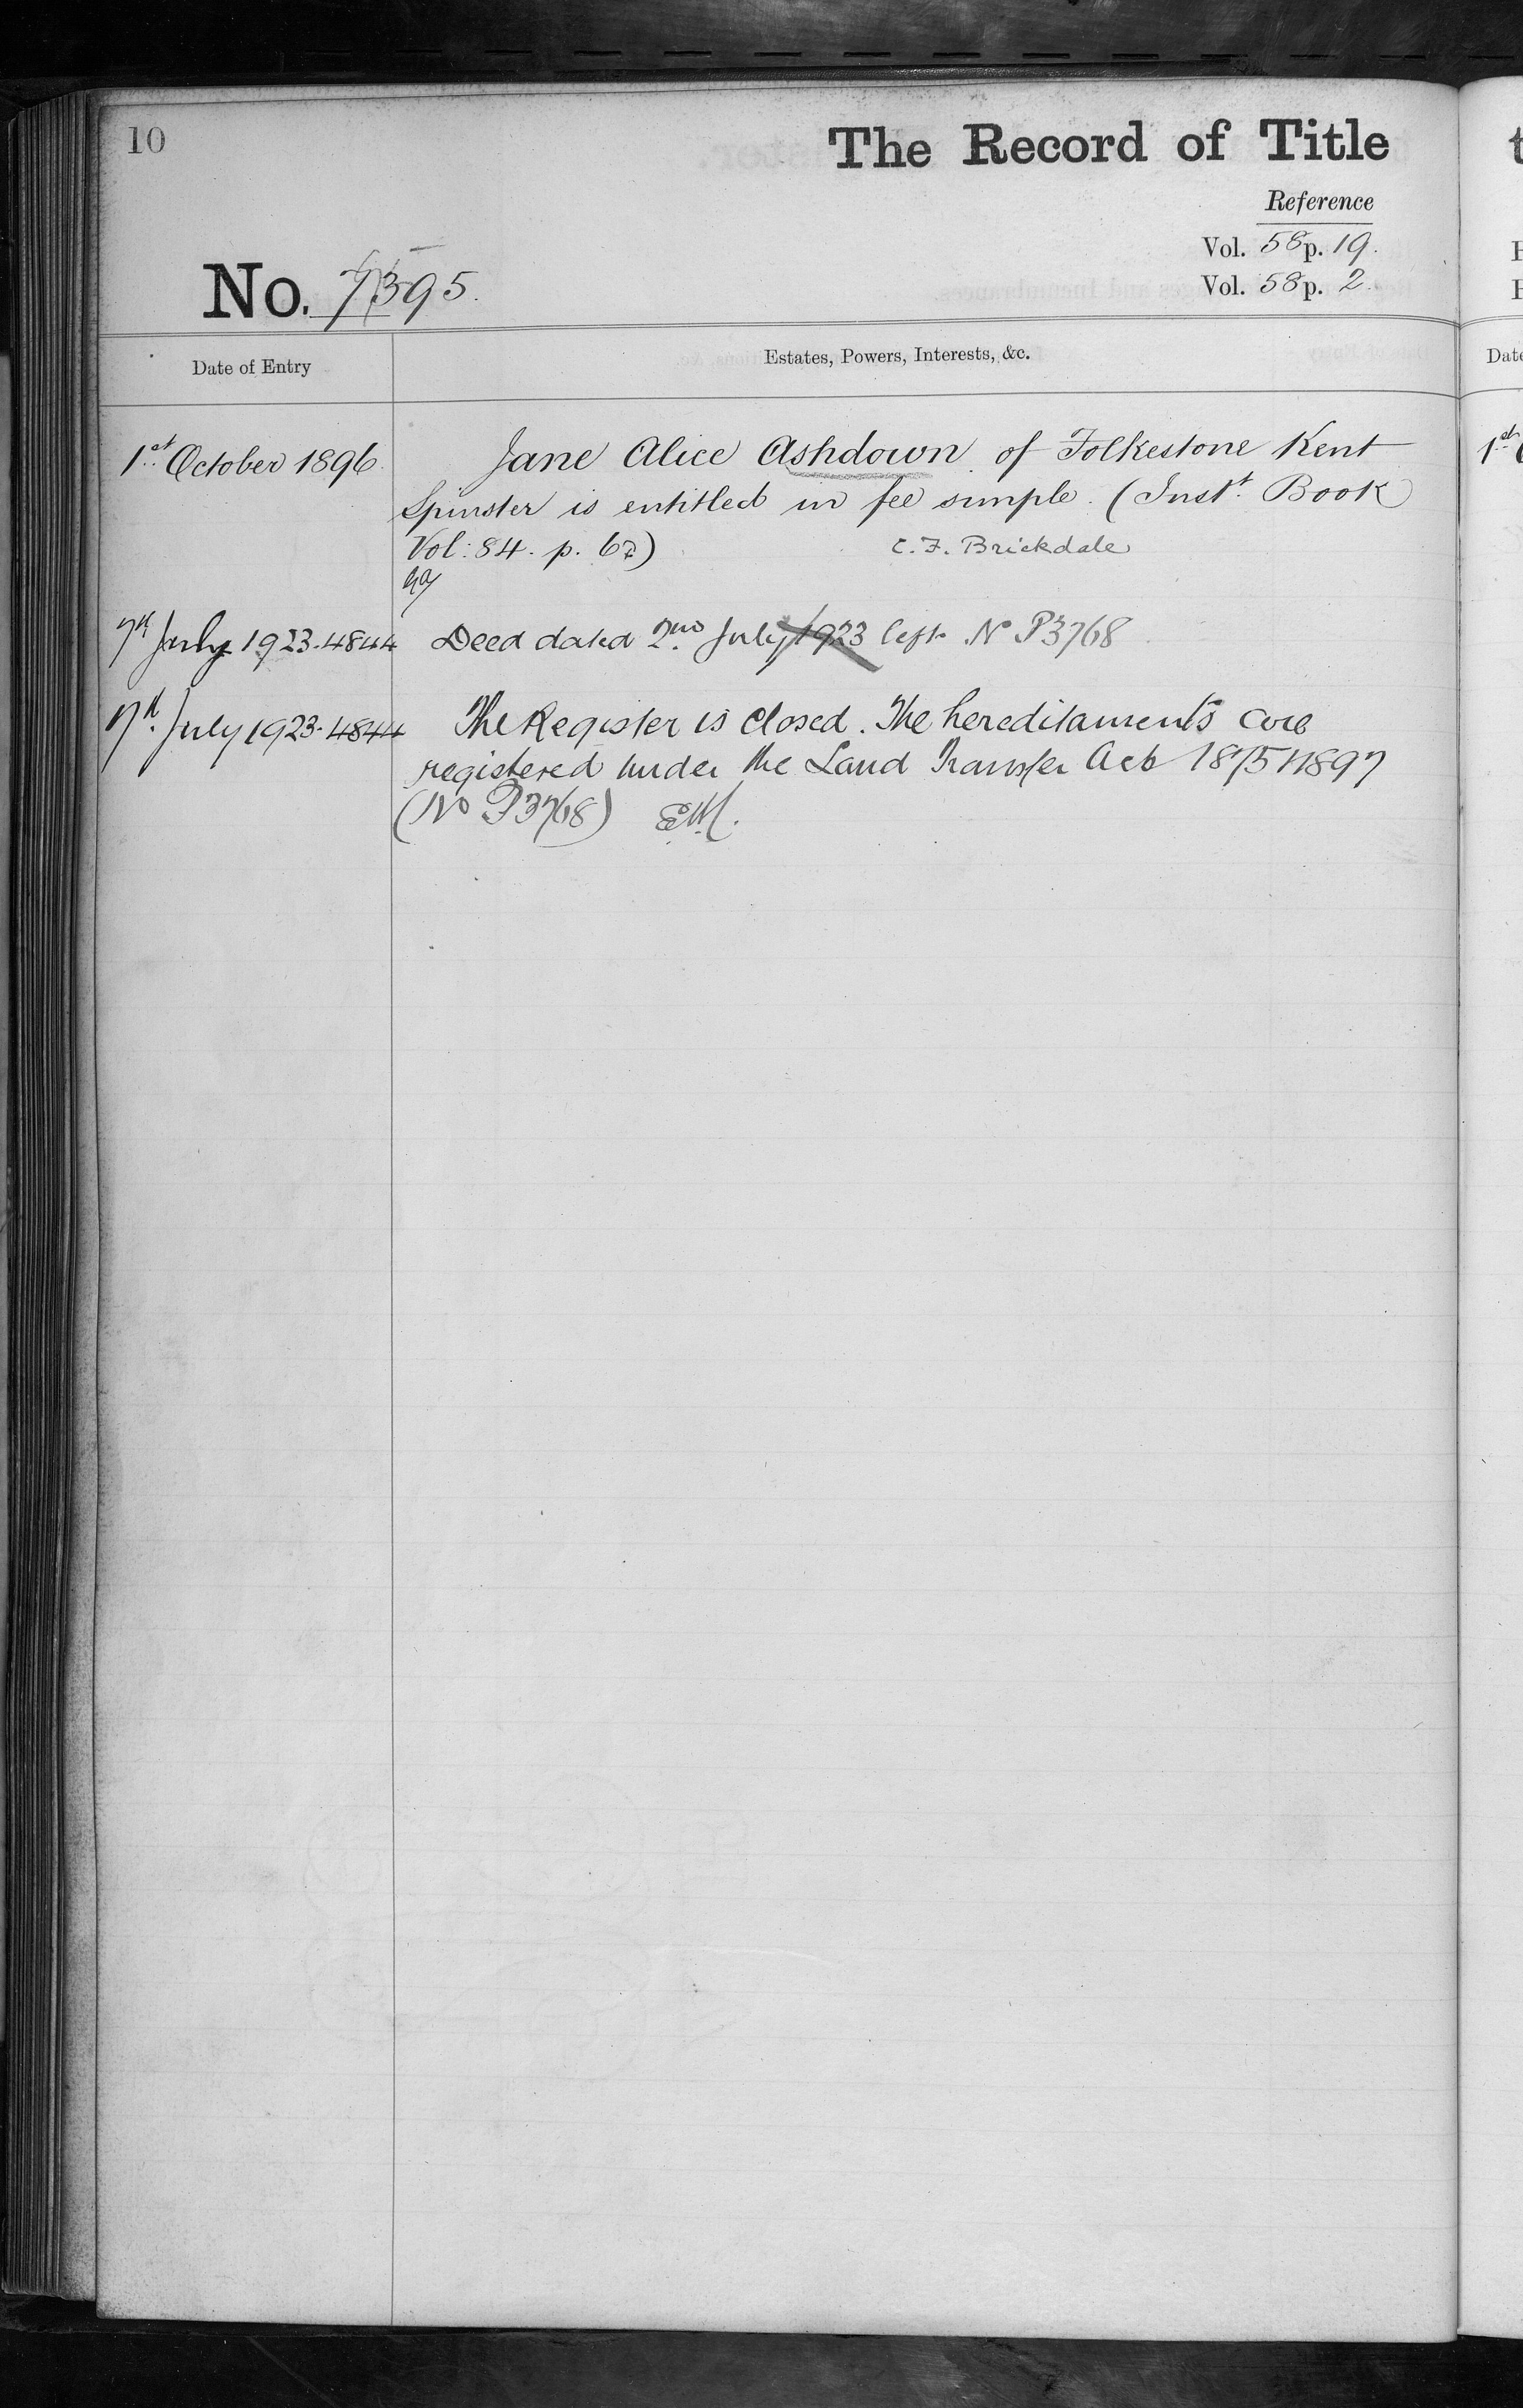 10
The Record of Title
Reference
Vol. 58 p. 19.
Vol. 58 p. 2.
No. 7395.
Date of Entry
Estates, Powers, Interests, &c.
1st October 1896.
Jane Alice Ashdown of Folkestone Kent
Spinster is entitled in fee simple. (Inst. Book
Vol: 84. p. 67)
C. F. Brickdale
7th July 1923. 4844
Deed dated 2nd July 1923 left. No P3768
7th July 1923. 4844
The Register is closed. The hereditaments are
registered under the Land Transfer Acts 1875 & 1897
(No P3768) EM.
Date
1st